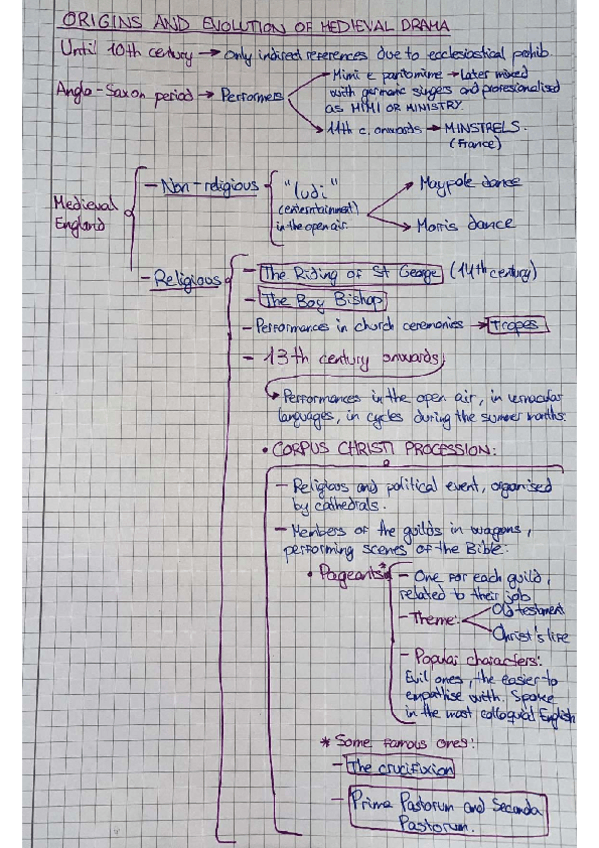 ORIGINS AND EVOLUTION OF MEDIEVAL DRAMA
Until 10th century → only indirect references due to ecclesiastical prohib.
Anglo-Saxon period → Performers
Mimi e pantomime → Later mixed
with germanic singers and profesionalised
as MIMI OR MINISTRY.
11th c. onwards → MINSTRELS.
(France)
Medieval
England
- Non-religious
"ludi"
(entertainment)
in the open air.
Maypole dance
Morris dance
- Religious
- The Riding of St George (14th century)
- The Boy Bishop
- Performances in church ceremonies → tropes
- 13th century onwards
Performances in the open air, in vernacular
languages, in cycles during the summer months.
• CORPUS CHRISTI PROCESSION:
- Religious and political event, organised
by cathedrals.
- Members of the guilds in wagons,
performing scenes of the Bible.
• Pageants*
- One for each guild,
related to their job
- Theme:
Old testament
Christ's life
- Popular characters:
Evil ones, the easier to
empathise with. Spoke
in the most colloquial English
* Some famous ones:
- The crucifixion
- Prima Pastorum and Secunda
Pastorum.